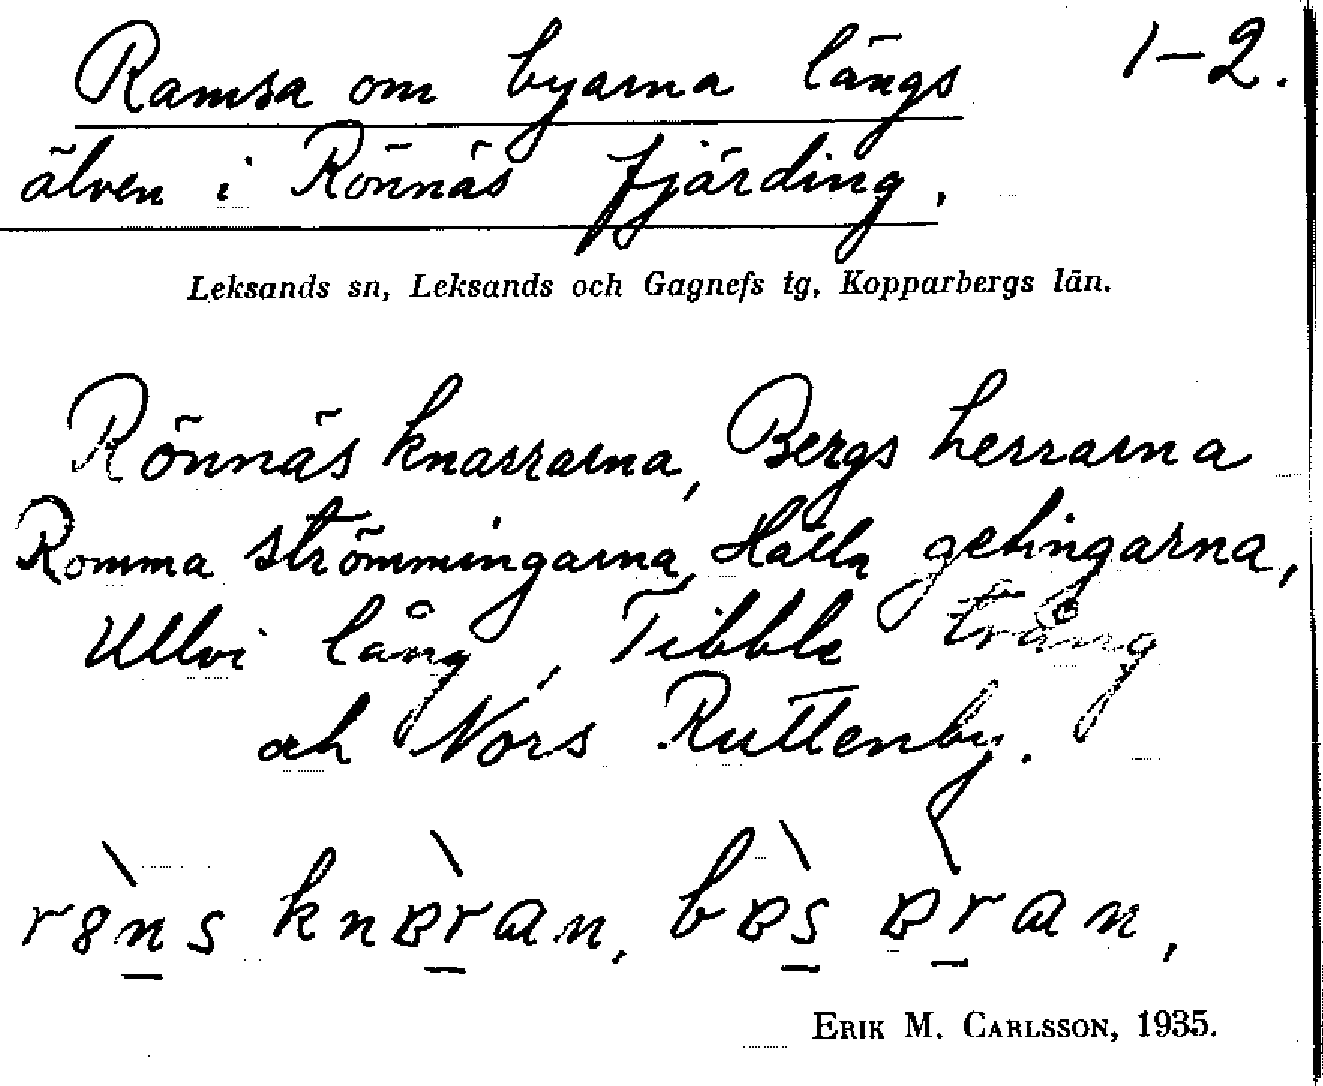 Ramsa om byarna längs 1-2.
älven i Rönnäs fjärding.
Leksands sn, Leksands och Gagnefs tg, Kopparbergs län.
Rönnäs knarrarna, Bergs herrarna
Romma strömmingarna, Hälla getingarna,
Ullvi lång, Tibble trång
och Nors Ruttenby.
knɐ̀ran,
ERIK M. CARLSSON, 1935.